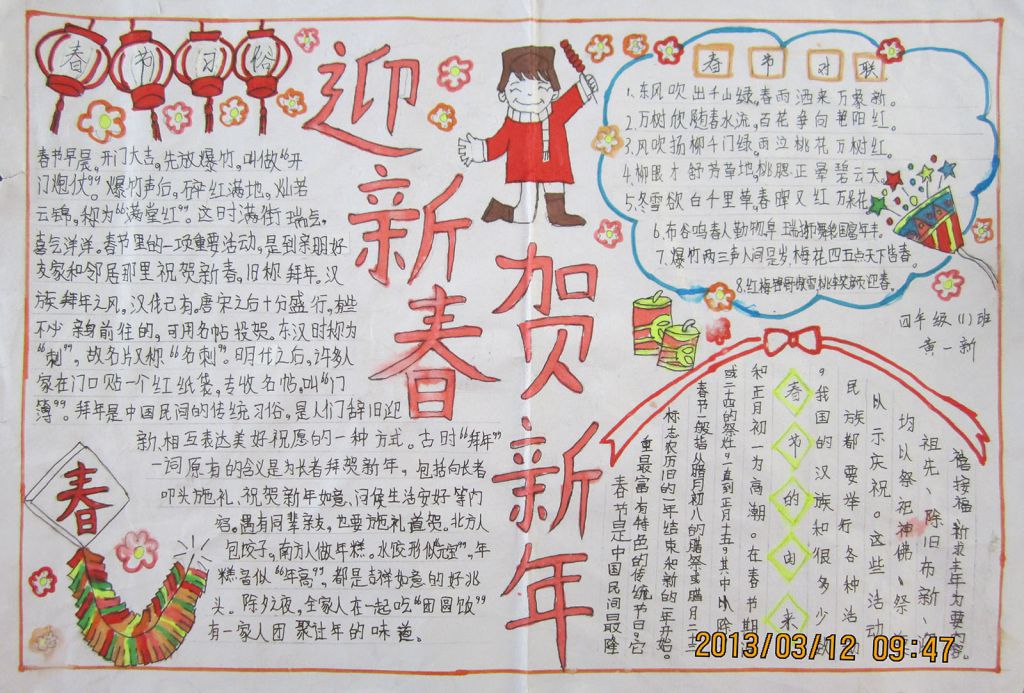 春节习俗
春节早晨，开门大吉，先放爆竹，叫做“开
门炮仗”。爆竹声后，碎红满地，灿若
云锦，称为“满堂红”。这时满街瑞气，
喜气洋洋。春节里的一项重要活动，是到亲朋好
友家和邻居那里祝贺新春，旧称拜年。汉
族拜年之风，汉代已有，唐宋之后十分盛行，有些
不必亲身前往的，可用名帖投贺。东汉时称为
“刺”，故名片又称“名刺”。明代之后，许多人
家在门口贴一个红纸袋，专收名帖，叫“门
簿”。拜年是中国民间的传统习俗，是人们辞旧迎
新、相互表达美好祝愿的一种方式。古时“拜年”
一词原有的含义是为长者拜贺新年，包括向长者
叩头施礼、祝贺新年如意、问候生活安好等内
容。遇有同辈亲友，也要施礼道贺。北方人
包饺子，南方人做年糕。水饺形似“元宝”，年
糕音似“年高”，都是吉祥如意的好兆
头。除夕之夜，全家人在一起吃“团圆饭”
有一家人团聚过年的味道。
春
迎新春
贺新年
春节对联
1.东风吹出千山绿，春雨洒来万象新。
2.万树欣随春水流，百花争向艳阳红。
3.风吹扬柳千门绿，雨泣桃花万树红。
4.柳眼才舒芳草地，桃腮正晕碧云天。
5.冬雪欲白千里草，春晖又红万朵花。
6.布谷鸣春人勤物阜
7.爆竹两三声人间是岁，梅花四五点天下皆春。
8.红梅
迎春。
四年级(1)班
黄一新
春节的由来
春节是中国民间最隆
重最富有特色的传统节日，它
标志农历旧的一年结束和新的一年开始。
春节一般指从腊月初八的腊祭或腊月二十三
或二十四的祭灶，一直到正月十五，其中以除
和正月初一为高潮。在春节期
，我国的汉族和很多少
民族都要举行各种活动
以示庆祝。这些活动
均以祭祀神佛、祭
祖先、除旧布新、
禧接福、祈求丰年为主要内容。
2013/03/12 09:47